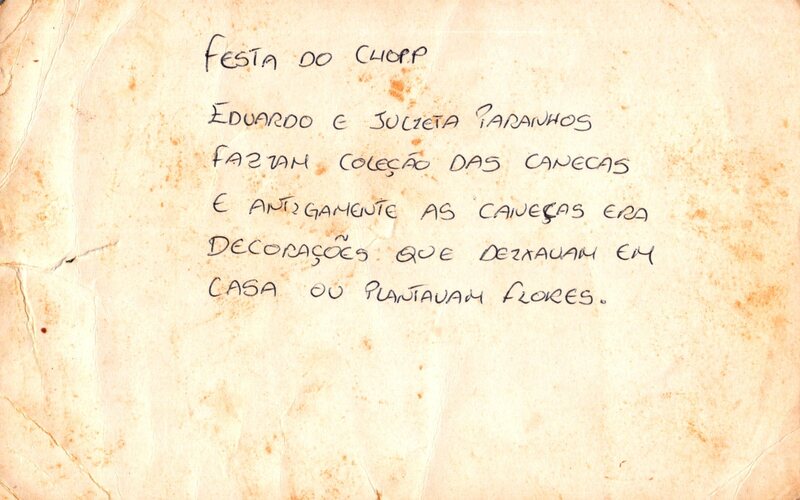 FESTA DO CHOPP
EDUARDO E JULIETA PARANHOS
FAZIAM COLEÇÃO DAS CANECAS
E ANTIGAMENTE AS CANEÇAS ERA
DECORAÇÕES QUE DEIXAVAM EM
CASA OU PLANTAVAM FLORES.